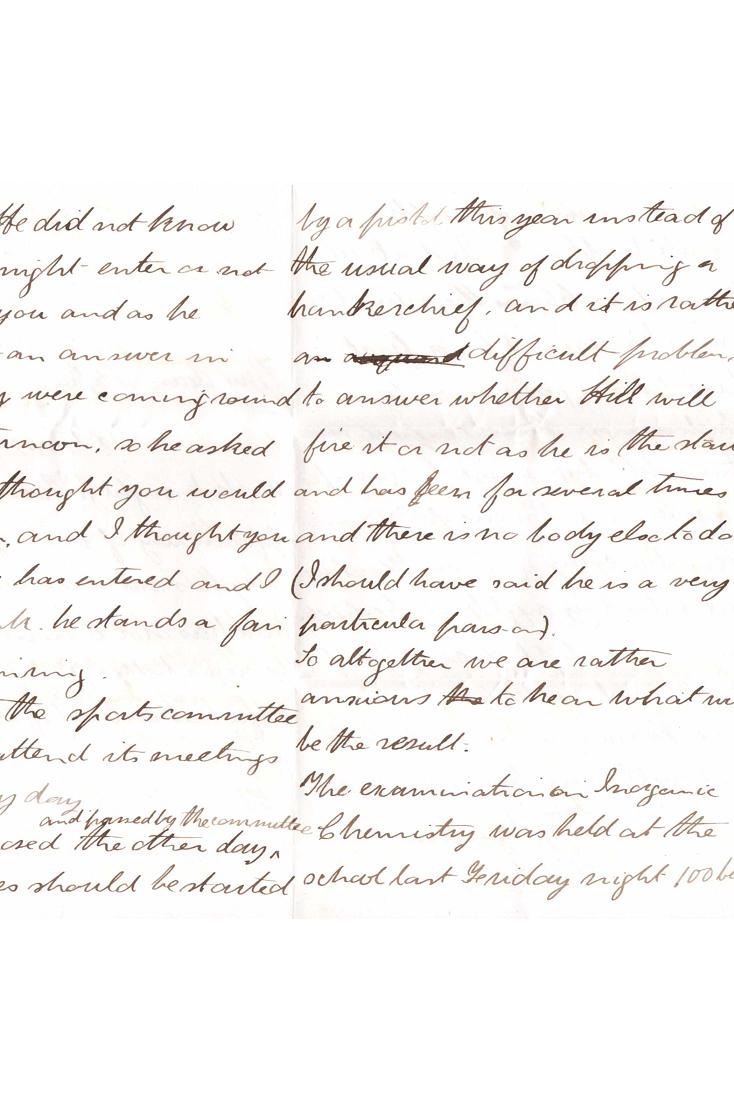 He did not know
might enter or not
you and as he
an answer in
were coming round
so he asked
thought you would
and I thought you
has entered and I
he stands a fair
the sports committee
attend its meetings
day
and passed by the committee
the other day,
should be started
by a pistol this year instead of
the usual way of dropping a
hankerchief, and it is rathe
an difficult problem
to answer whether Hill will
fire it or not as he is the star
and has been for several times
and there is no body else to do
(I should have said he is a very
particula parson).
So altogether we are rather
ansious the to hear what w
be the result.
The examination in Inorganic
Chemistry was held at the
school last Friday night 100 b